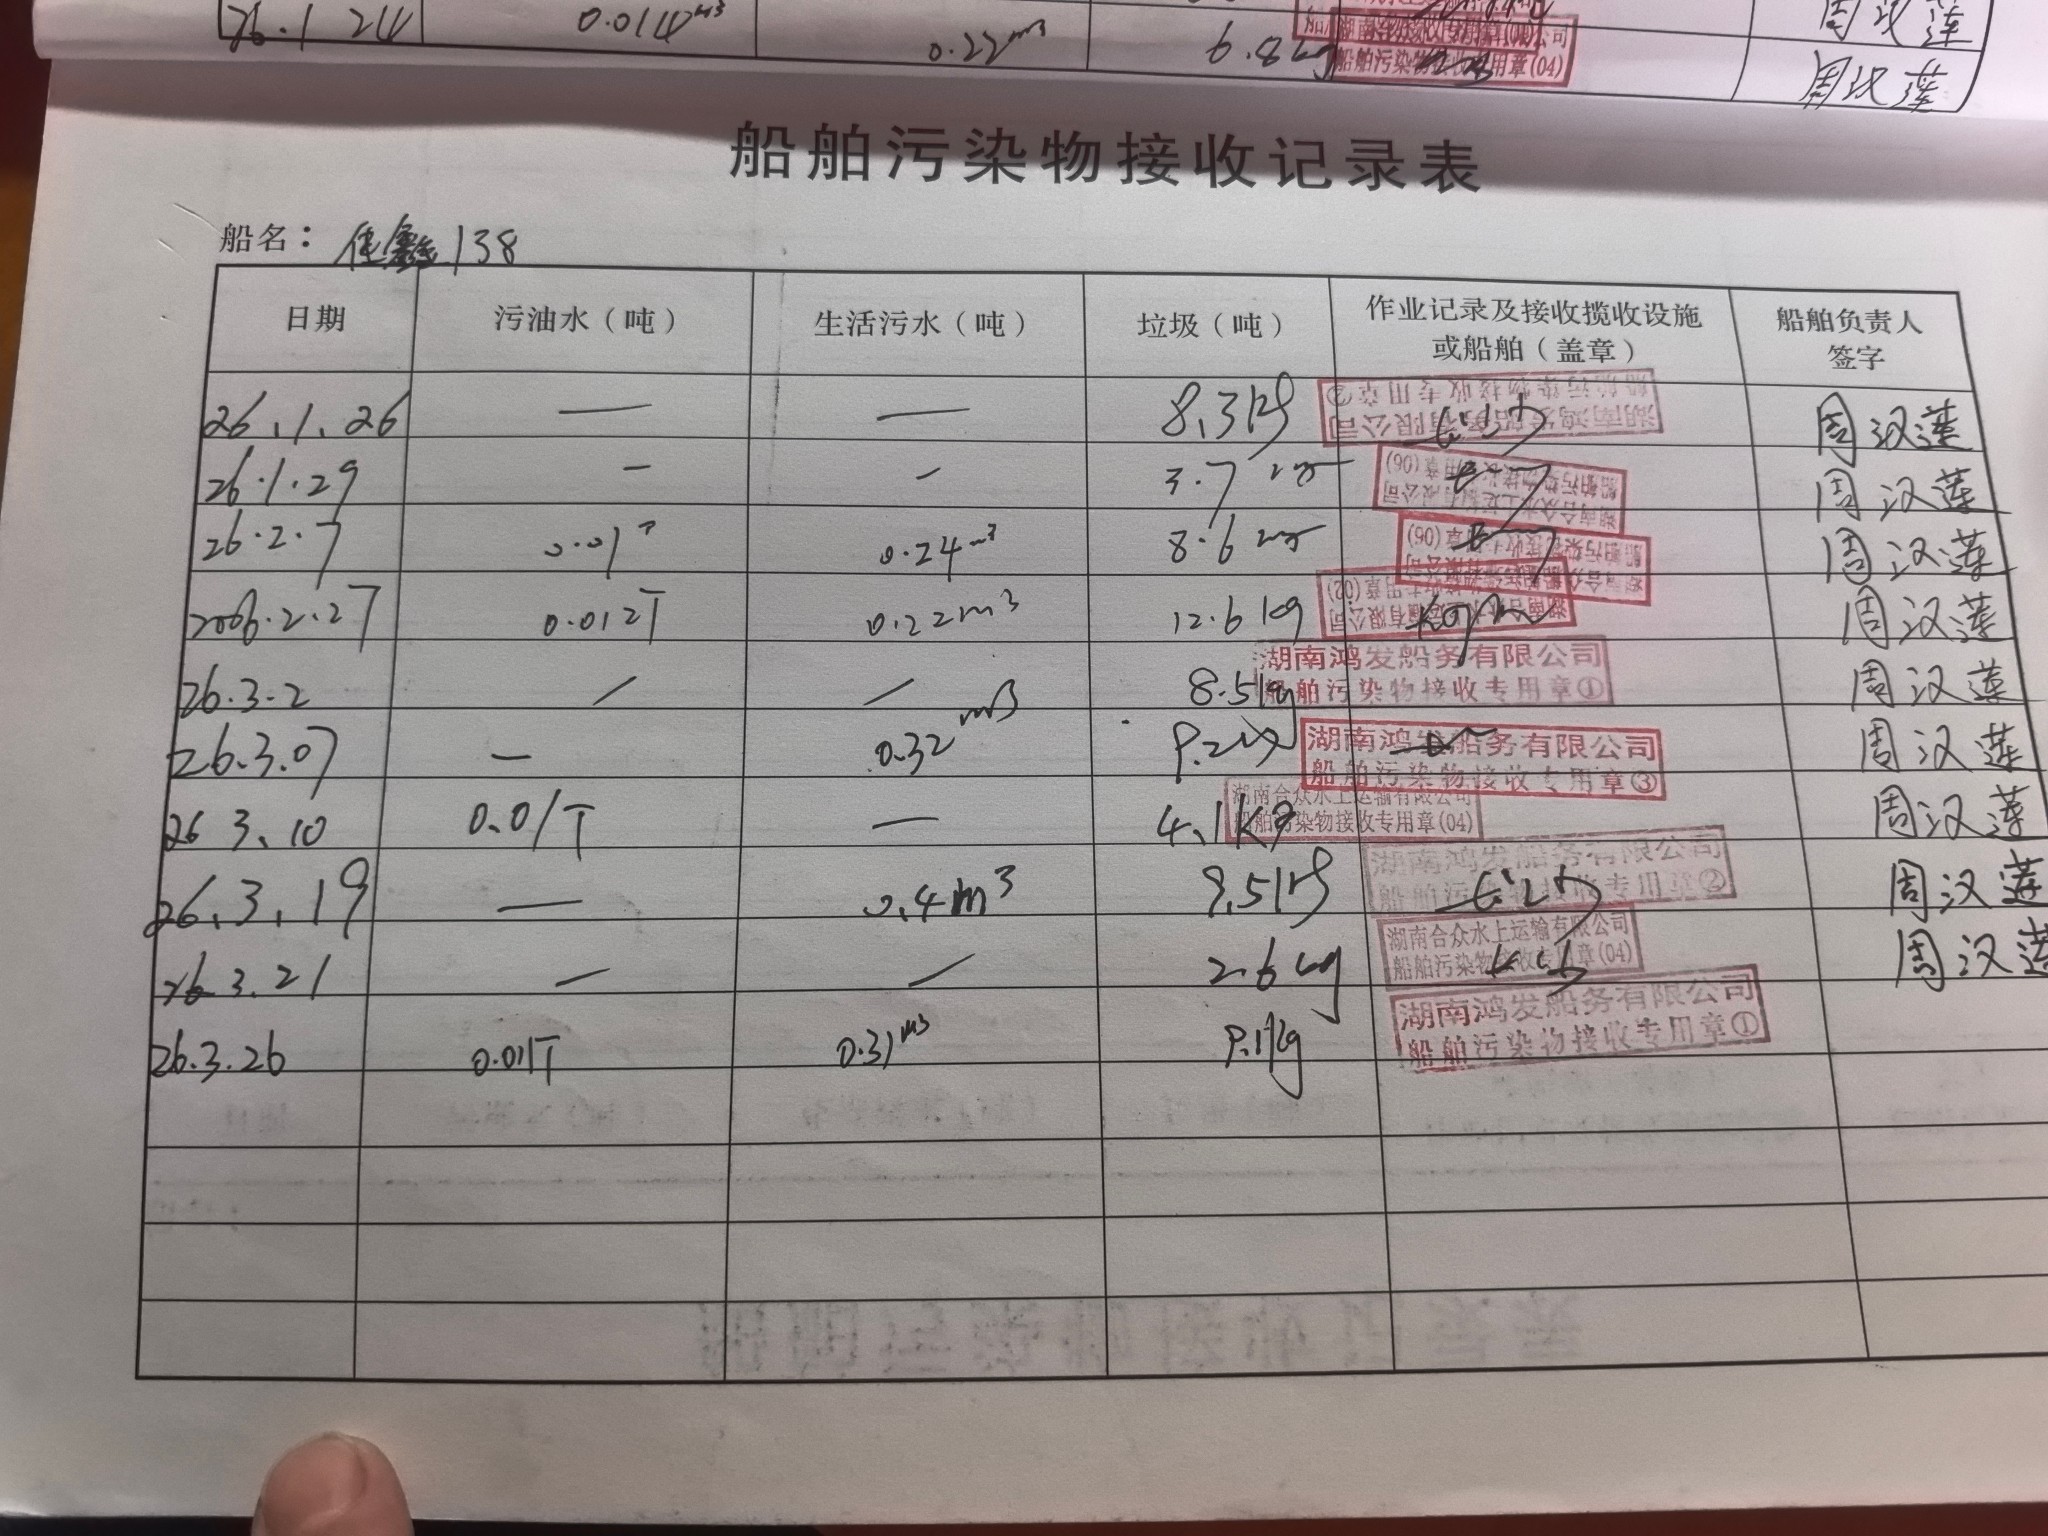 26.1.24 0.014m³ 0.22m³ 6.8kg 船舶污染物接收专用章(04) 周汉莲
船舶污染物接收记录表
船名：佳鑫138
日期 污油水（吨） 生活污水（吨） 垃圾（吨） 作业记录及接收揽收设施或船舶（盖章） 船舶负责人签字
26.1.26 — — 8.3kg 湖南鸿发船务有限公司 船舶污染物接收专用章② 周汉莲
26.1.29 — — 3.7kg 湖南合众水上运输有限公司 船舶污染物接收专用章(06) 周汉莲
26.2.7 0.01T 0.24m³ 8.6kg 湖南合众水上运输有限公司 船舶污染物接收专用章(06) 周汉莲
2026.2.27 0.012T 0.22m³ 12.6kg 湖南合众水上运输有限公司 船舶污染物接收专用章(02) 周汉莲
26.3.2 / / 8.5kg 湖南鸿发船务有限公司 船舶污染物接收专用章① 周汉莲
26.3.07 — 0.32m³ 9.2kg 湖南鸿发船务有限公司 船舶污染物接收专用章③ 周汉莲
26.3.10 0.01T — 4.1kg 湖南合众水上运输有限公司 船舶污染物接收专用章(04) 周汉莲
26.3.19 — 0.4m³ 9.5kg 湖南鸿发船务有限公司 船舶污染物接收专用章② 周汉莲
26.3.21 — / 2.6kg 湖南合众水上运输有限公司 船舶污染物接收专用章(04) 周汉莲
26.3.26 0.01T 0.31m³ 9.1kg 湖南鸿发船务有限公司 船舶污染物接收专用章①